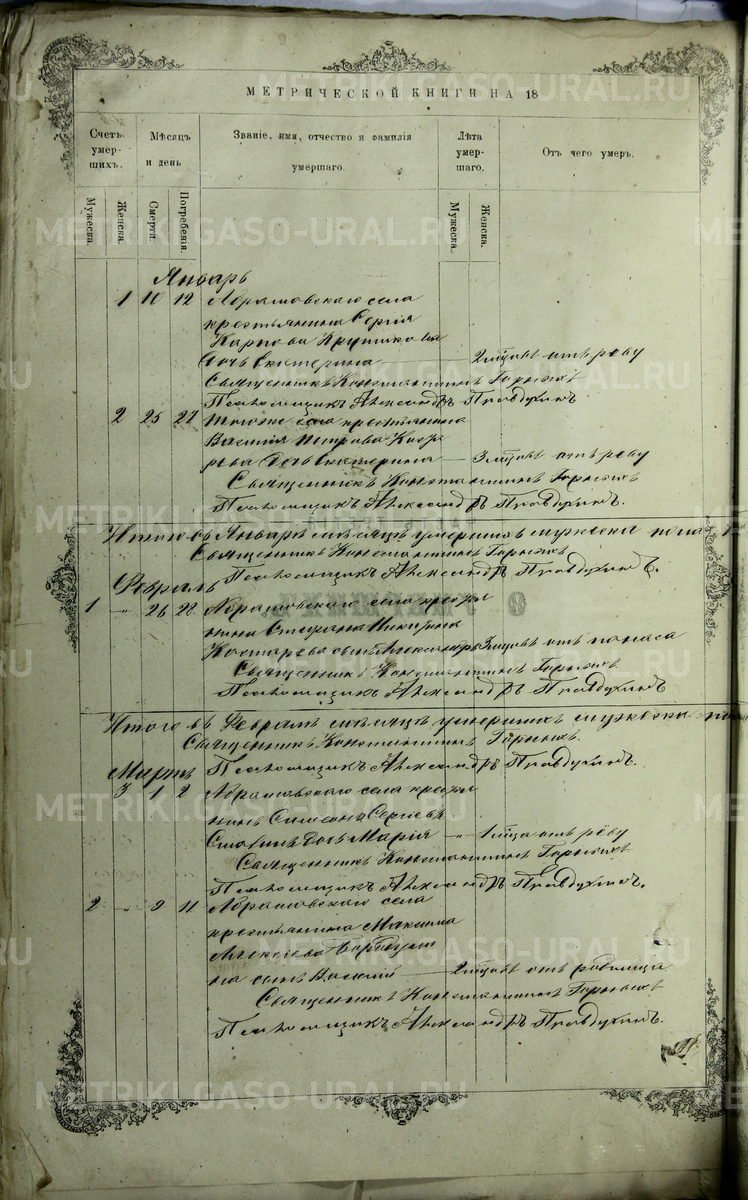 МЕТРИЧЕСКОЙ КНИГИ НА 18
Счетъ умер- шихъ.
Мѣсяцъ и день
Званіе, имя, отчество и фамилія умершаго.
Лѣта умер- шаго.
Отъ чего умеръ.
Мужеска. Женска. Смерти. Погребенія. Мужеска. Женска.
Январь
1 10 12 Абрамовскаго села
крестьянина Сергія
Карпова
дочь Екатерина — 2 отъ реву
Священникъ Константинъ Горныхъ
Псаломщикъ Александръ Правдухинъ
2 25 27 того же села крестьянина
Василія Петрова
дочь Екатерина — 3 отъ реву
Священникъ Константинъ Горныхъ
Псаломщикъ Александръ Правдухинъ.
Итого въ Январѣ мѣсяцѣ умершихъ мужеска пола
Священникъ Константинъ Горныхъ
Псаломщикъ Александръ Правдухинъ.
Февраль
1 „ 26 28 Абрамовскаго села кресть
янина Стефана Никитина
Костарева сынъ Александръ 3 отъ поноса
Священникъ Константинъ Горныхъ
Псаломщикъ Александръ Правдухинъ
Итого въ Февралѣ мѣсяцѣ умершихъ мужеска
Священникъ Константинъ Горныхъ.
Псаломщикъ Александръ Правдухинъ.
Мартъ
3 1 2 Абрамовскаго села кресть
Симеона Сергіева
дочь Марія — „ 1 отъ рёву
Священникъ Константинъ Горныхъ
Псаломщикъ Александръ Правдухинъ.
2 „ 9 11 Абрамовскаго села
крестьянина Максима
Алексіева
на сынъ Василій — 2 отъ родимца
Священникъ Константинъ Горныхъ
Псаломщикъ Александръ Правдухинъ.
METRIKI.GASO-URAL.RU